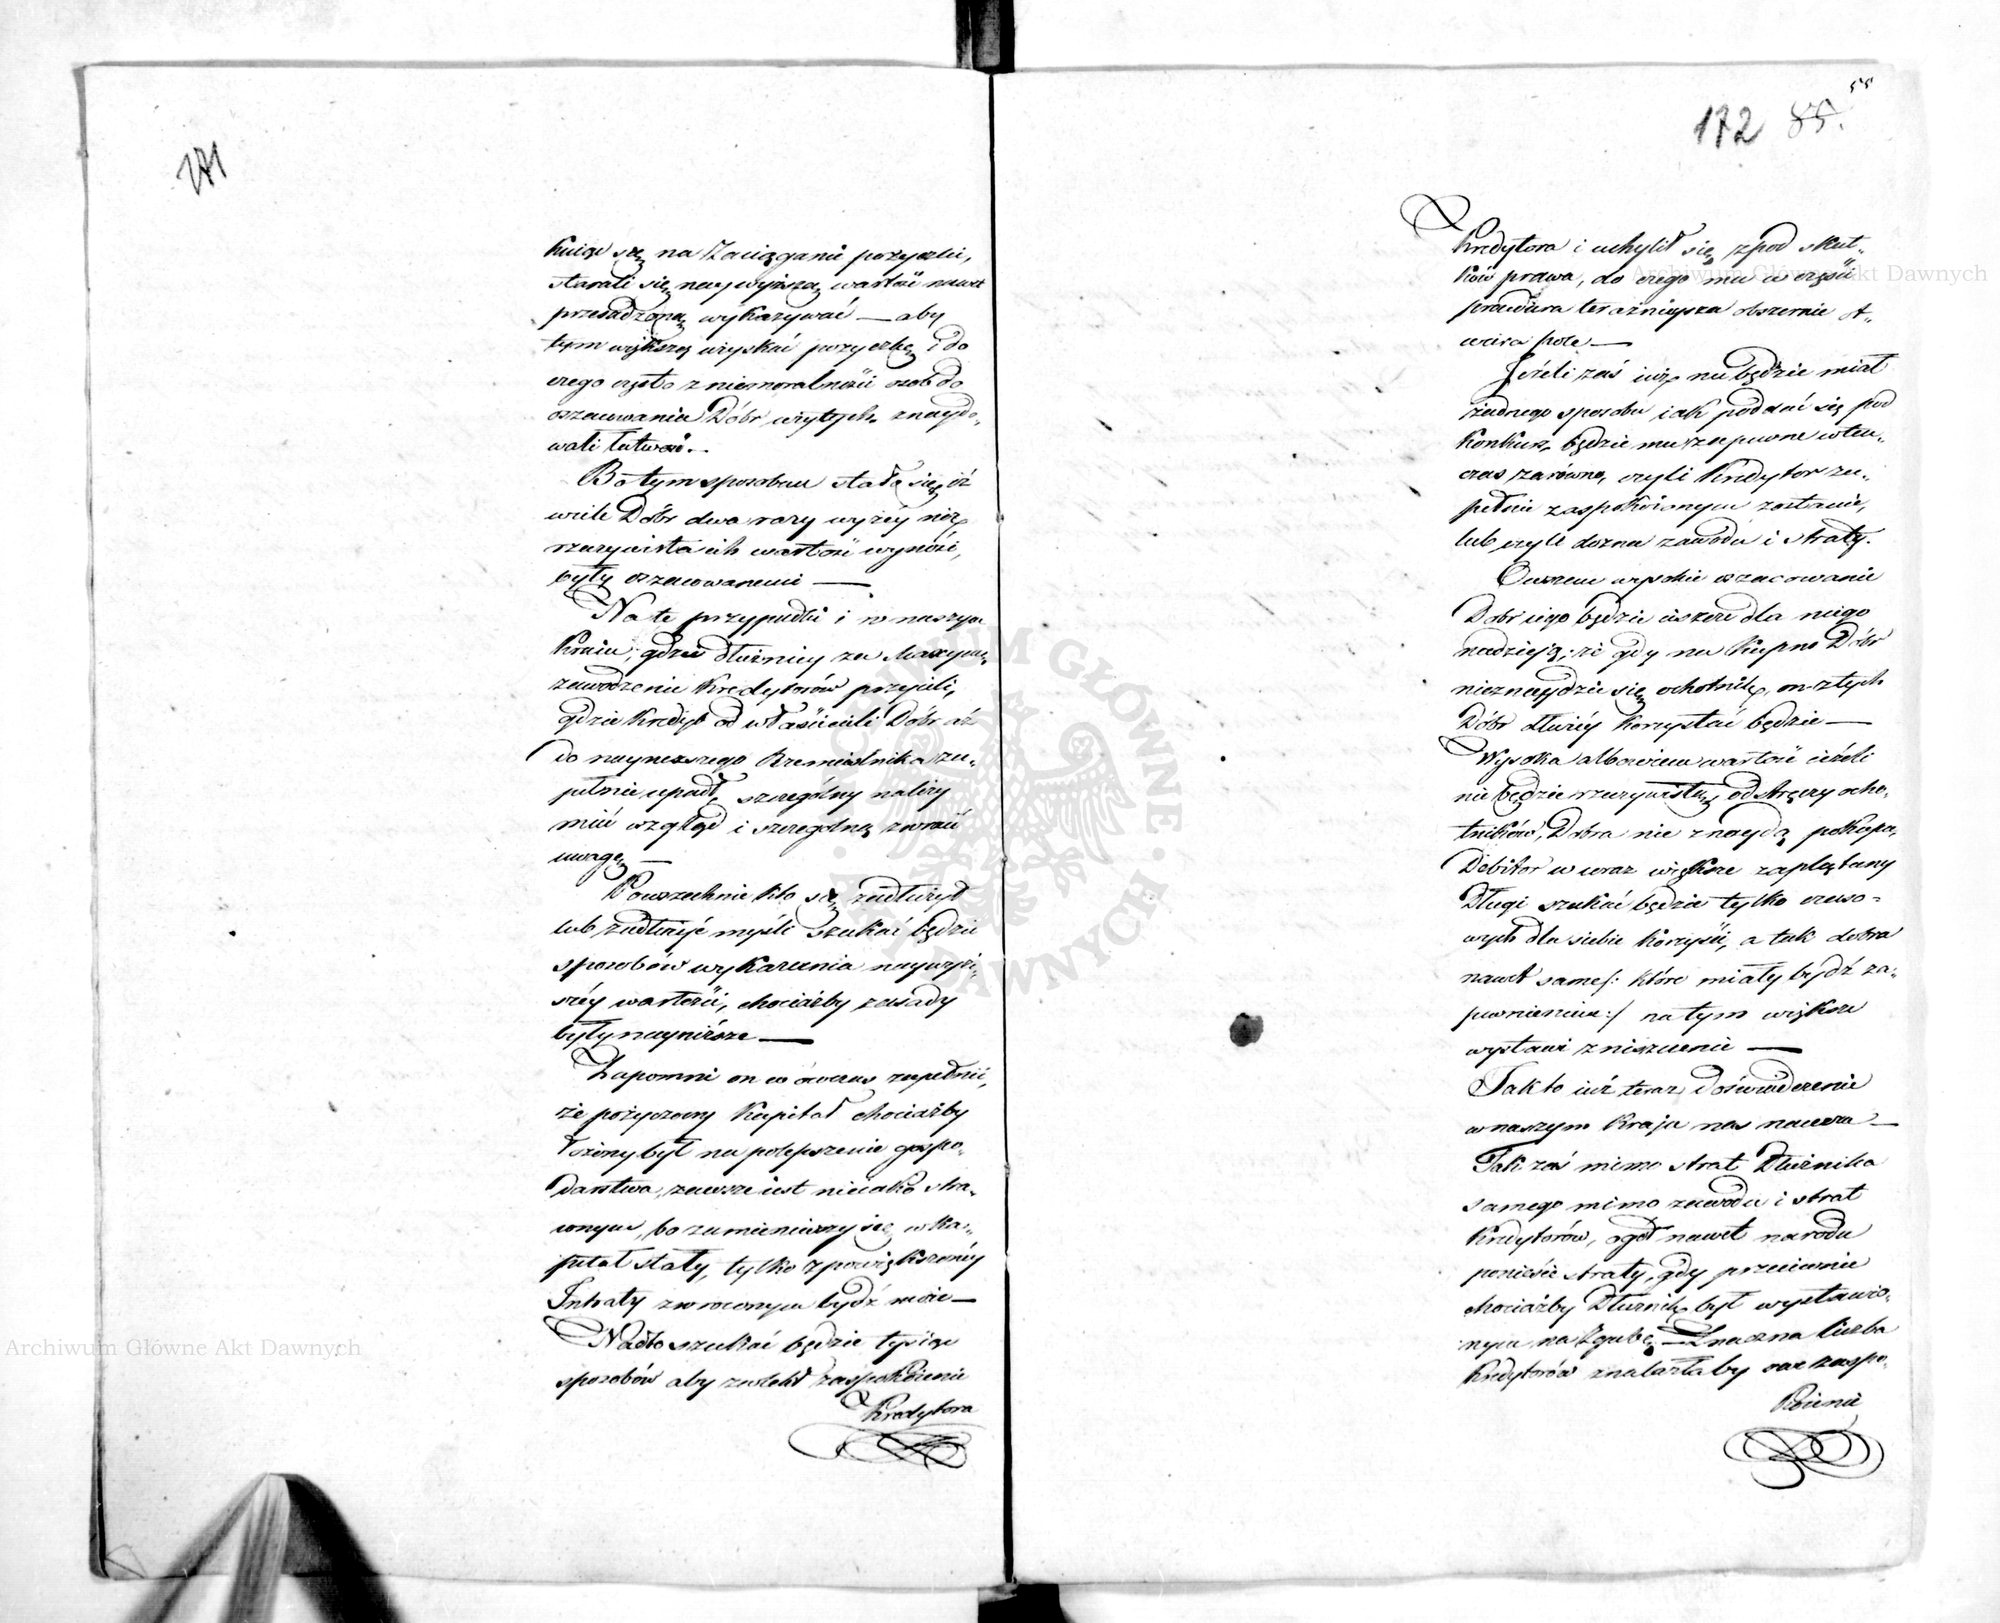 171
kując się na Zaciąganie pożyczki,
starali się naywyższą wartość nawet
przesadzoną wykazywać — aby
tym większą uzyskać pożyczkę i do
czego często z niemoralności osob do
oszacowania Dóbr użytych znaydo-
wali łatwość.
Po tym sposobem stało się, iż
wiele Dóbr dwa razy wyżéy niż
rzeczywista ich wartość wynosi,
były oszacowanemi —
Na te przypadki i w naszym
Kraiu, gdzie dłużnicy za Maxymę
zawodzenie Kredytorów przyieli,
gdzie Kredyt od właścicieli Dóbr aż
do naynizszego Rzemieślnika zu-
pełnie upadł, szczególny należy
mieć wzgląd i szczególną zwrócić
uwagę —
Powszechnie kto się zadłużył
lub zadłużyć myśli szukać będzie
sposobów wykazania naywyż-
széy wartości, chociażby zasady
były nayniższe —
Zapomni on wówczas zupełnie,
że pożyczony Kapitał chociażby
łożony był na polepszenie gospo-
darstwa, zawsze iest nieiako stra-
conym, bo zamieniwszy się w Ka-
pitał stały, tylko z powiększonéy
Intraty zwroconym bydź może —
Nadto szukać będzie tysiące
sposobów aby zwlekł zaspokoienie
Kredytora
55
172 85.
Kredytora i uchylił się z pod skut-
ków prawa, do czego mu w części
procedura teraźnieysza obszerne ot-
wiera pole —
Jeżeli zaś iuż nie będzie miał
żadnego sposobu iak poddać się pod
Konkurs, będzie mu zapewne wten-
czas zarówno, czyli Kredytor zu-
pełnie zaspokoionym zostanie,
lub czyli dozna zawodu i straty.
Owszem wysokie oszacowanie
Dóbr iego będzie ieszcze dla niego
nadzieją, że gdy na kupno Dóbr
nieznaydzie się ochotnik, on z tych
Dóbr dłużéy korzystać będzie —
Wysoka albowiem wartość ieżeli
nie będzie rzeczywistą, odstręczy ocho-
tników, Dobra nie znaydą pokupu,
Debitor w coraz większe zaplątany
Długi szukać będzie tylko czaso-
wych dla siebie korzyści, a tak dobra
nawet same /: które miały bydź za-
pewnieniem :/ na tym większe
wystawi zniszczenie —
Tak to iuż teraz doświadczenie
w naszym Kraju nas naucza —
Tak zaś mimo strat Dłużnika
samego mimo zawodu i strat
Kredytorów, ogół nawet narodu
poniesie straty, gdy przeciwnie
chociażby Dłużnik był wystawio-
nym na zgubę — Znaczna liczba
Kredytorów znalazłaby swe zaspo-
koienie
Archiwum Główne Akt Dawnych
Archiwum Główne Akt Dawnych
ARCHIWUM GŁÓWNE · AKT DAWNYCH ·